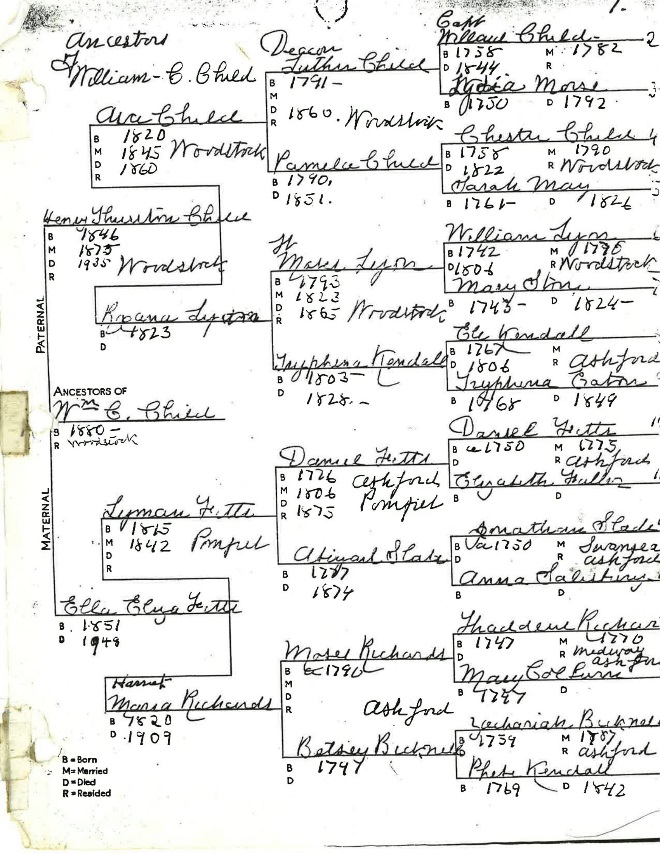 1.
Ancestors
of
William C. Child
Asa Child
B 1820
M 1845 Woodstock
D 1860
R
Henry Thurston Child
B 1846
M 1875
D 1935 Woodstock
R
Roxana Lyon
B 1823
D
PATERNAL
ANCESTORS OF
Wm C. Child
B 1880 -
R Woodstock
MATERNAL
Lyman Fitts
B 1815
M 1842 Pomfret
D
R
Ella Eliza Fitts
B 1851
D 1948
Harriet
Maria Richards
B 1820
D 1909
B = Born
M = Married
D = Died
R = Resided
Deacon
Luther Child
B 1791 -
M
D 1860. Woodstock
R
Pamela Child
B 1790.
D 1851.
Moses Lyon
B 1793
M 1823
D 1865 Woodstock
R
Tryphena Kendall
B 1803 -
D 1828. -
Daniel Fitts
B 1776 Ashford
M 1806 Pomfret
D 1875
R
Abigail Slade
B 1787
D 1874
Moses Richards
B ca 1790
M
D
R Ashford
Betsey Bicknell
B 1797
D
Capt
Willard Child 2
B 1758 M 1782
D 1844 R
Lydia Morse 3
B 1750 D 1792
Chester Child 4
B 1758 M 1790
D 1822 R Woodstock
Sarah May
B 1761 - D 1826
William Lyon
B 1742 M 1770
D 1806 R Woodstock
Mary Stone
B 1743 - D 1824 -
Ele Kendall
B 1767 M
D 1806 R Ashford
Tryphena Eaton
B 1768 D 1849
Daniel Fitts
B ca 1750 M 1775
D R Ashford
Elizabeth Fuller
B D
Jonathan Slade
B ca 1750 M Swansea
D R Ashford
Anna Salisbury
B D
Thaddeus Richar
B 1747 M 1770
D R Medway
Ashford
Mary Colburn
B 1747 D
Zachariah Bicknel
B 1759 M 1787
D R Ashford
Phebe Kendall
B 1769 D 1842